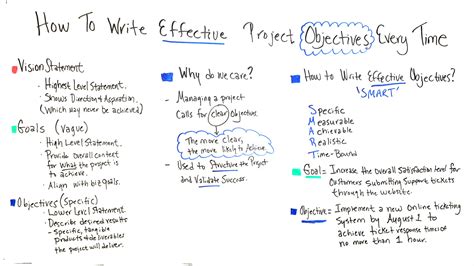 How To Write Effective Project Objectives Every Time
Vision Statement
- Highest Level Statement.
- Shows Direction & Aspiration.
(Which may never be achieved)
Goals (Vague)
- High Level Statement.
- Provide Overall context
for What the project is
to achieve.
- Align with biz goals.
Objectives (Specific)
- Lower Level Statement.
- Describe desired results
- specific, tangible
products & deliverables
the project will deliver.
Why do we care?
- Managing a project
Calls for clear Objectives.
The more Clear,
the more likely to Achieve.
- Used to Structure the Project
and Validate Success.
How to Write Effective Objectives?
'SMART'
Specific
Measurable
Achievable
Realistic
Time-Bound
Goal = Increase the Overall Satisfaction level for
Customers Submitting Support tickets
through the website.
Objective = Implement a new online ticketing
System by August 1 to
achieve ticket response times of
no more than 1 hour.